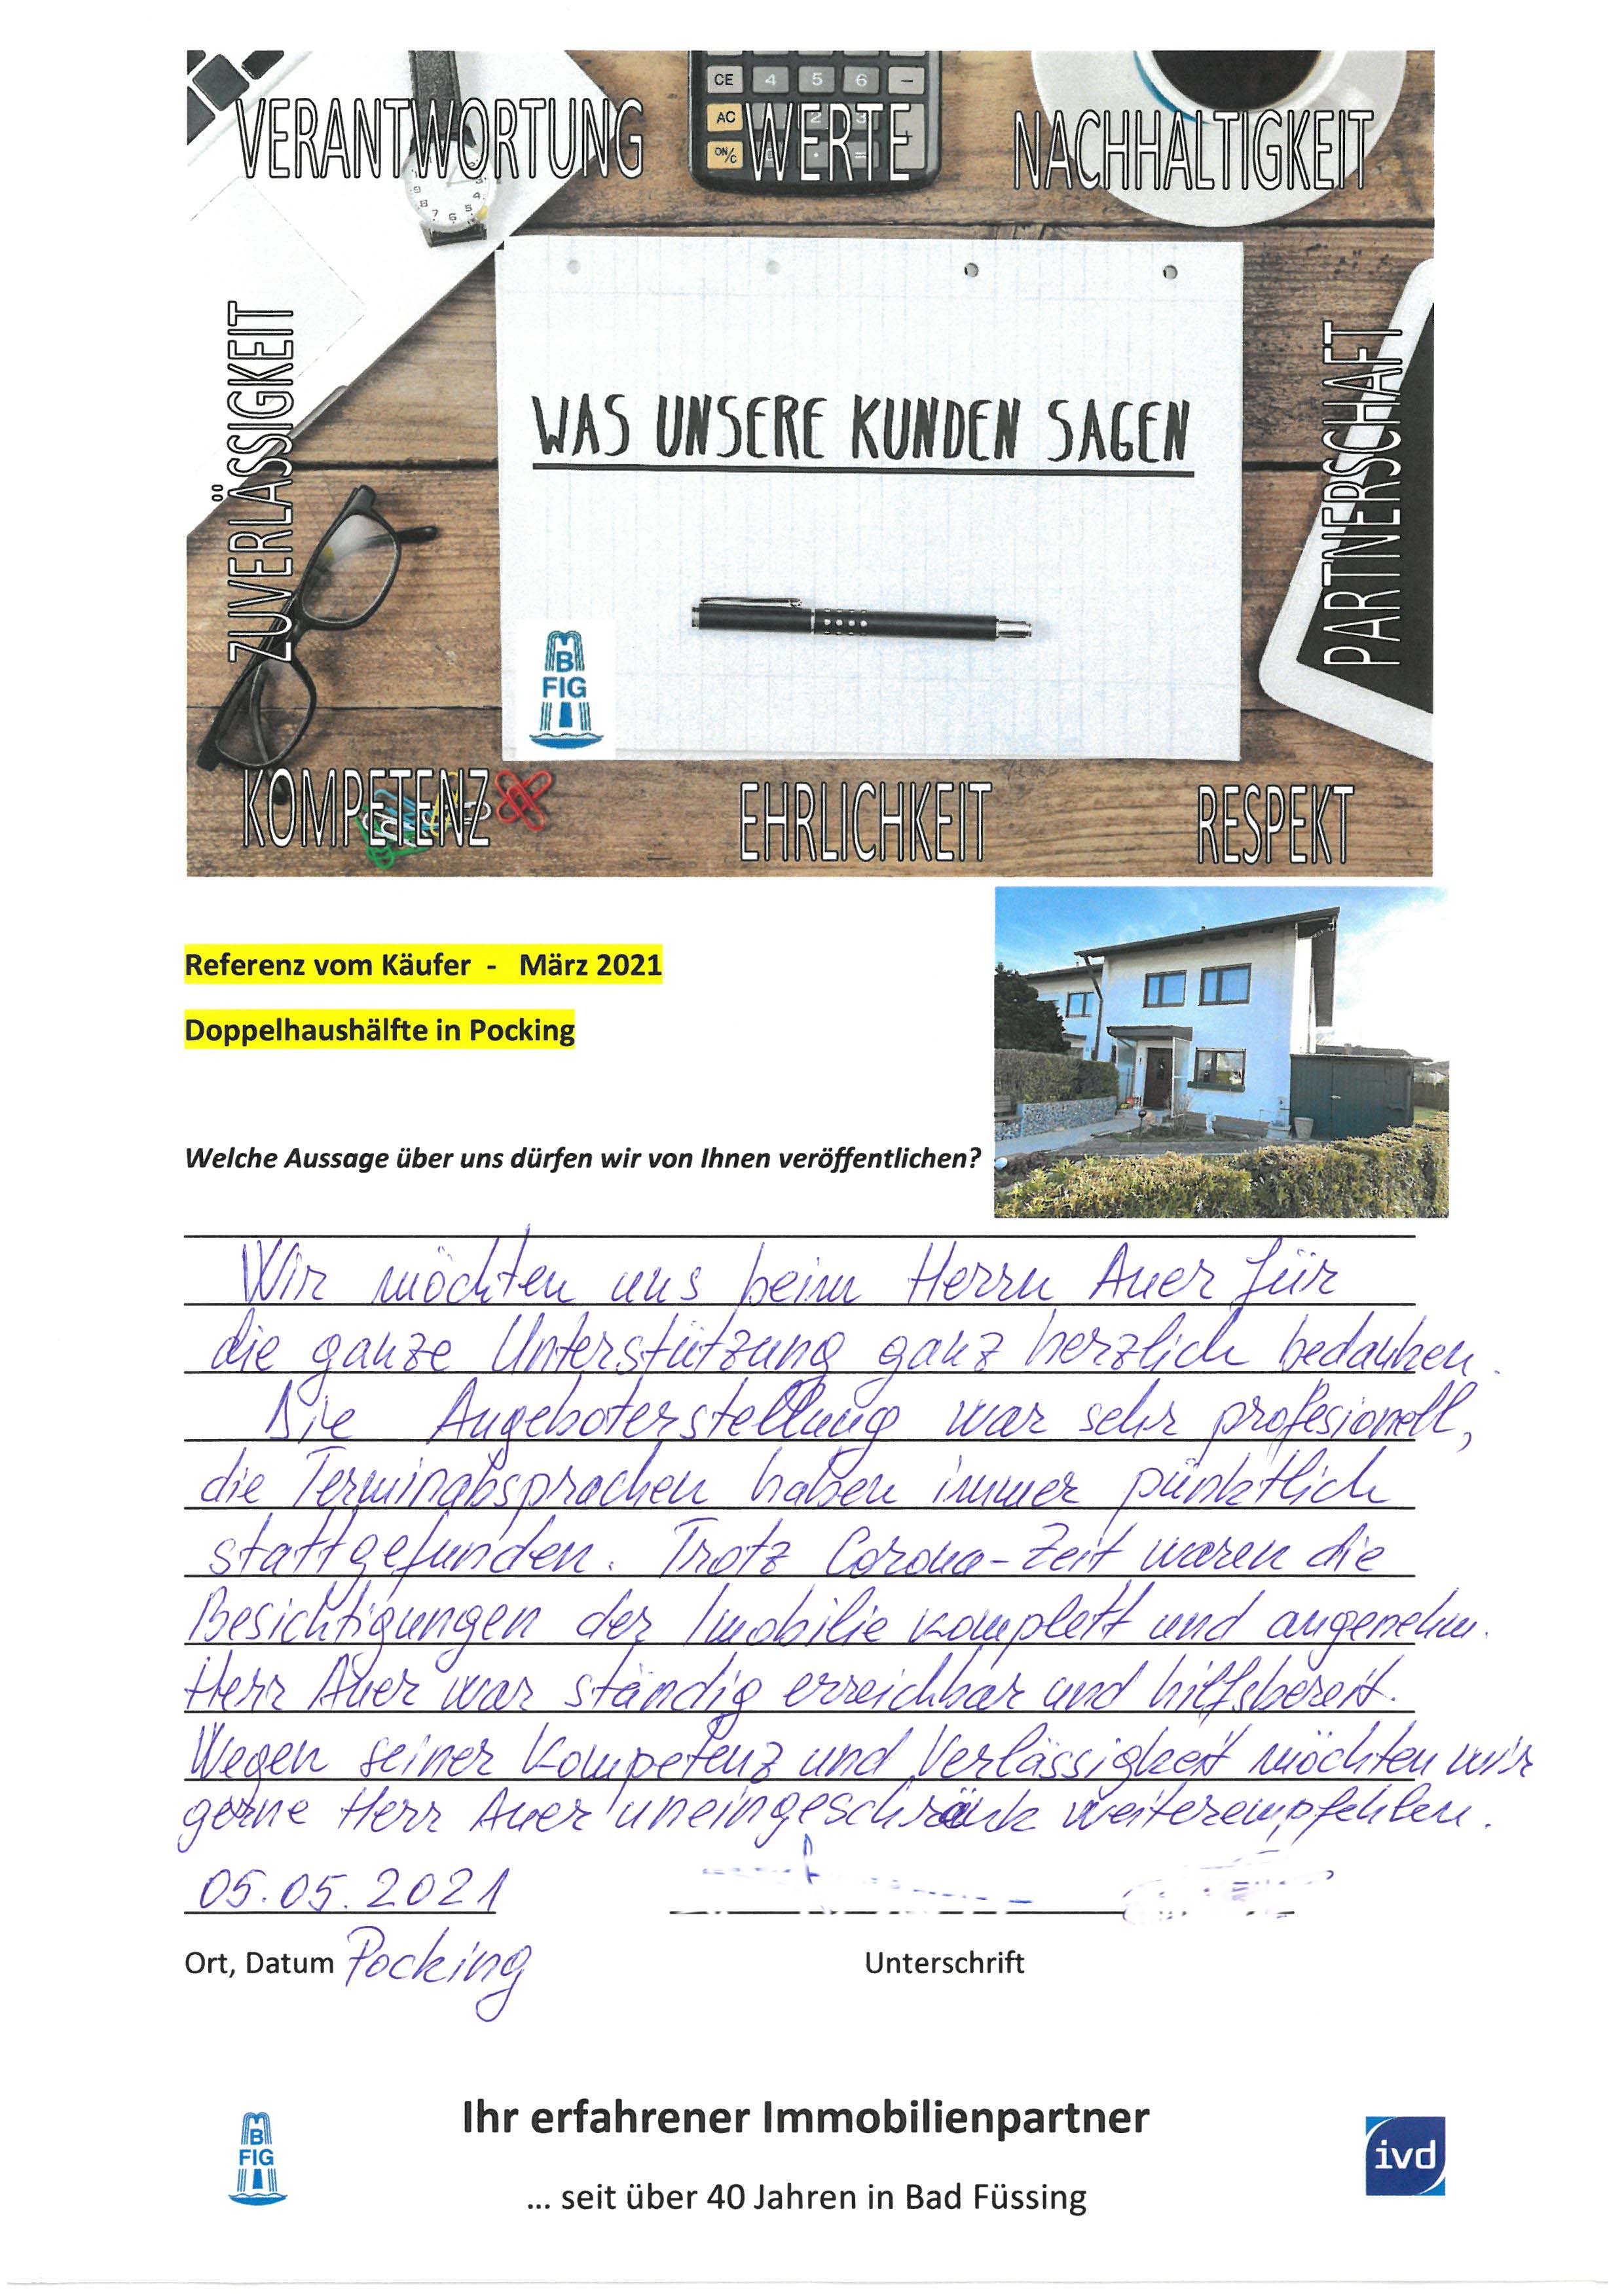 CE 4 5 6 –
AC 2 3
ON/C
VERANTWORTUNG WERTE NACHHALTIGKEIT
ZUVERLÄSSIGKEIT
WAS UNSERE KUNDEN SAGEN
PARTNERSCHAFT
B
FIG
KOMPETENZ EHRLICHKEIT RESPEKT
Referenz vom Käufer - März 2021
Doppelhaushälfte in Pocking
Welche Aussage über uns dürfen wir von Ihnen veröffentlichen?
Wir möchten uns beim Herrn Auer für
die ganze Unterstützung ganz herzlich bedanken.
Die Angeboterstellung war sehr profesionell,
die Terminabsprachen haben immer pünktlich
stattgefunden. Trotz Corona-Zeit waren die
Besichtigungen der Imobilie komplett und angenehm.
Herr Auer war ständig erreichbar und hilfsbereit.
Wegen seiner Kompetenz und Verlässigkeit möchten wir
gerne Herr Auer uneingeschränk weiterempfehlen.
05.05.2021
Ort, Datum Pocking Unterschrift
Ihr erfahrener Immobilienpartner
B
FIG
ivd
... seit über 40 Jahren in Bad Füssing